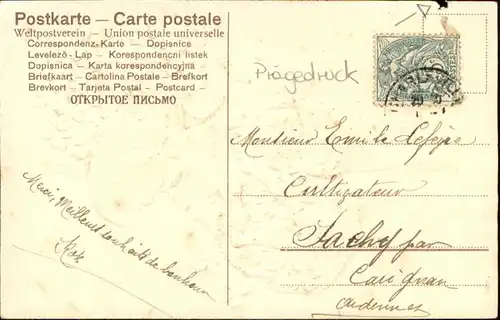 Postkarte — Carte postale
Weltpostverein — Union postale universelle
Correspondenz-Karte — Dopisnice
Levelező-Lap — Korespondencni listek
Dopisnica — Karta korespondencyjna
Briefkaart — Cartolina Postale — Brefkort
Brevkort — Tarjeta Postal — Postcard —
ОТКРЫТОЕ ПИСЬМО
Prägedruck
Monsieur Emile Lefeye
Cultigateur
Sachy par
Carignan
Ardennes
Merci, Meilleurs souhaits de bonheur